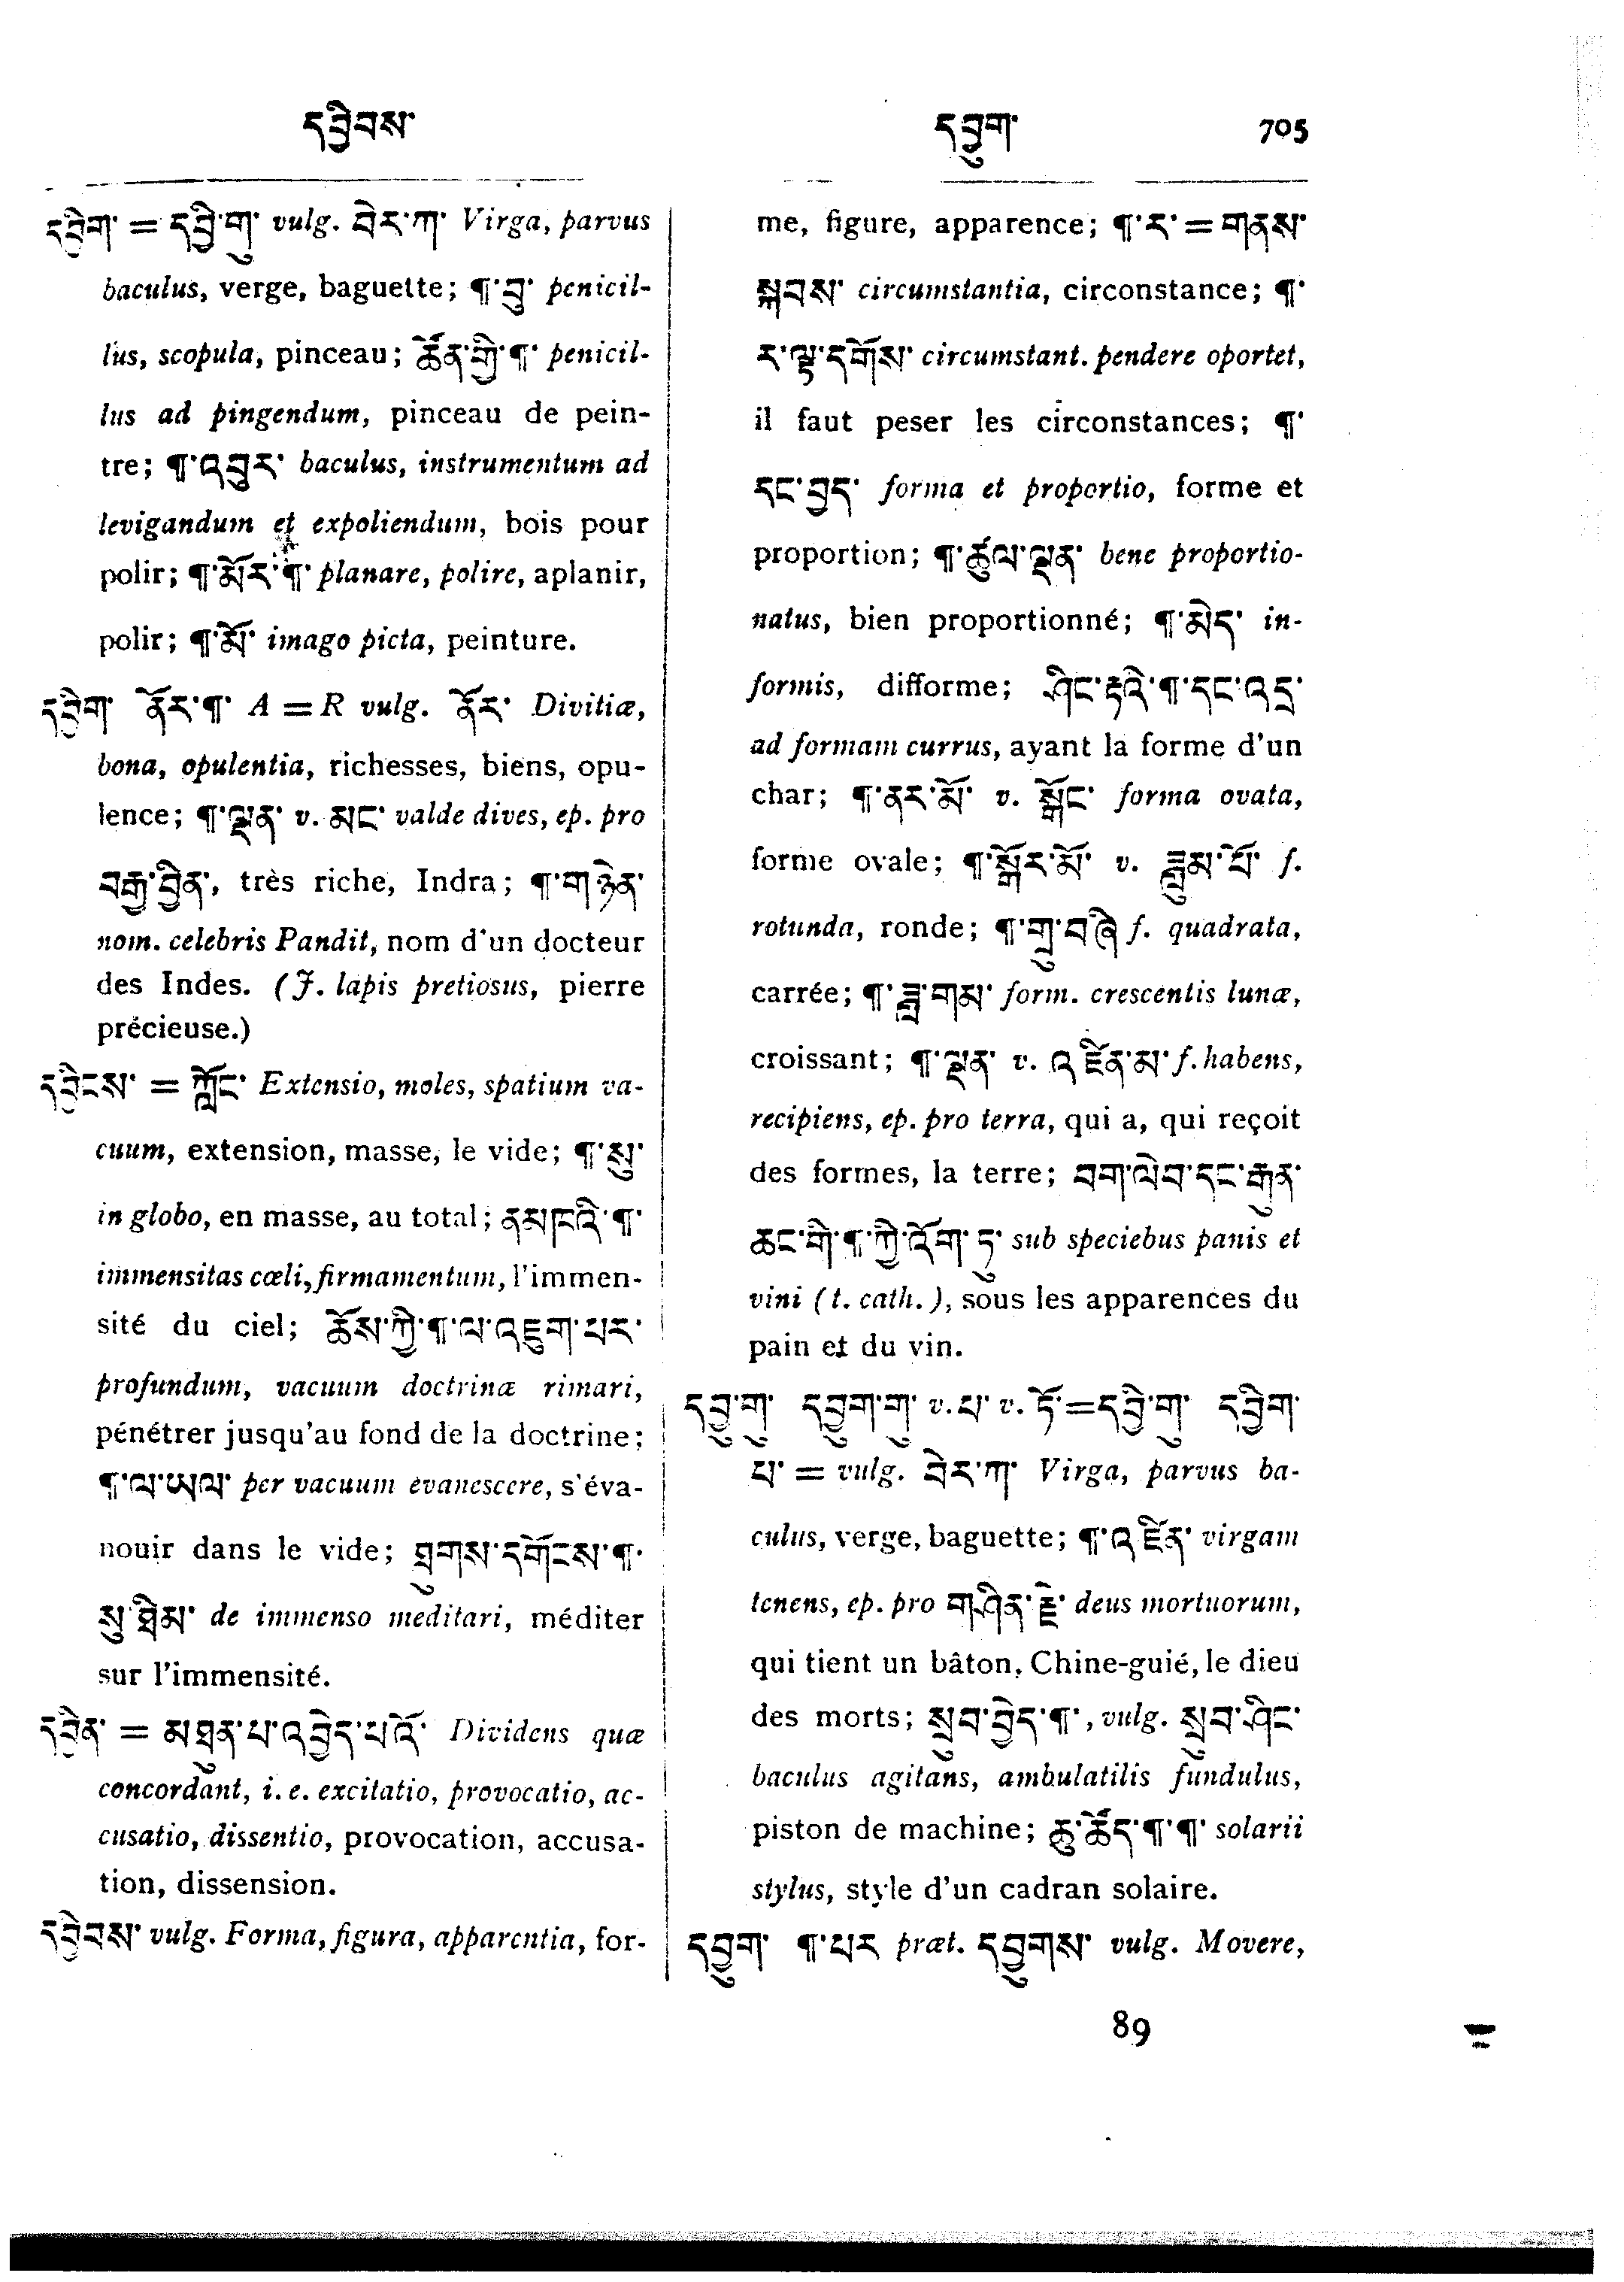 དབྱིབས་ དབྱུག་ 705
དབྱིག་ = དབྱི་གུ་ vulg. བེར་ཀ་ Virga, parvus
baculus, verge, baguette; ¶་བུ་ penicil-
lus, scopula, pinceau; ཚོན་གྱི་¶་ penicil-
lus ad pingendum, pinceau de pein-
tre; ¶་འབུར་ baculus, instrumentum ad
levigandum et expoliendum, bois pour
polir; ¶་མོར་¶་ planare, polire, aplanir,
polir; ¶་མོ་ imago picta, peinture.
དབྱིག་ ནོར་¶་ A = R vulg. ནོར་ Divitiæ,
bona, opulentia, richesses, biens, opu-
lence; ¶་ལྡན་ v. མང་ valde dives, ep. pro
བརྒྱ་བྱིན་, très riche, Indra; ¶་གཉེན་
nom. celebris Pandit, nom d'un docteur
des Indes. (J. lapis pretiosus, pierre
précieuse.)
དབྱིངས་ = ཀློང་ Extensio, moles, spatium va-
cuum, extension, masse, le vide; ¶་སུ་
in globo, en masse, au total; ནམཁའི་¶་
immensitas cœli, firmamentum, l'immen-
sité du ciel; ཆོས་ཀྱི་¶་ལ་འཇུག་པར་
profundum, vacuum doctrinæ rimari,
pénétrer jusqu'au fond de la doctrine;
¶་ལ་ཡལ་ per vacuum evanescere, s'éva-
nouir dans le vide; ཐུགས་དགོངས་¶་
སུ་ཐིམ་ de immenso meditari, méditer
sur l'immensité.
དབྱེན་ = མཐུན་པ་འབྱེད་པའོ་ Dividens quæ
concordant, i. e. excitatio, provocatio, ac-
cusatio, dissentio, provocation, accusa-
tion, dissension.
དབྱིབས་ vulg. Forma, figura, apparentia, for-
me, figure, apparence; ¶་ར་ = གནས་
སྐབས་ circumstantia, circonstance; ¶་
ར་ལྟ་དགོས་ circumstant. pendere oportet,
il faut peser les circonstances; ¶་
དང་བྱད་ forma et proportio, forme et
proportion; ¶་ཚུལ་ལྡན་ bene proportio-
natus, bien proportionné; ¶་མེད་ in-
formis, difforme; ཤིང་རྟའི་¶་དང་འདྲ་
ad formam currus, ayant la forme d'un
char; ¶་ནར་མོ་ v. སྒོང་ forma ovata,
forme ovale; ¶་སྒོར་མོ་ v. ཟླུམ་པོ་ f.
rotunda, ronde; ¶་གྲུ་བཞི f. quadrata,
carrée; ¶་ཟླ་གམ་ form. crescentis lunæ,
croissant; ¶་ལྡན་ v. འཛིན་མ་ f. habens,
recipiens, ep. pro terra, qui a, qui reçoit
des formes, la terre; བག་ལེབ་དང་རྒུན་
ཆང་གི་¶་ཀྱི་འོག་ཏུ་ sub speciebus panis et
vini (t. cath.), sous les apparences du
pain et du vin.
དབྱུ་གུ་ དབྱུག་གུ་ v. པ་ v. ཏོ་=དབྱི་གུ་ དབྱིག་
པ་ = vulg. བེར་ཀ་ Virga, parvus ba-
culus, verge, baguette; ¶་འཛིན་ virgam
tenens, ep. pro གཤིན་རྗེ་ deus mortuorum,
qui tient un bâton, Chine-guié, le dieu
des morts; སྲུབ་བྱེད་¶་, vulg. སྲུབ་ཤིང་
baculus agitans, ambulatilis fundulus,
piston de machine; ཆུ་ཚོད་¶་¶་ solarii
stylus, style d'un cadran solaire.
དབྱུག་ ¶་པར præt. དབྱུགས་ vulg. Movere,
89